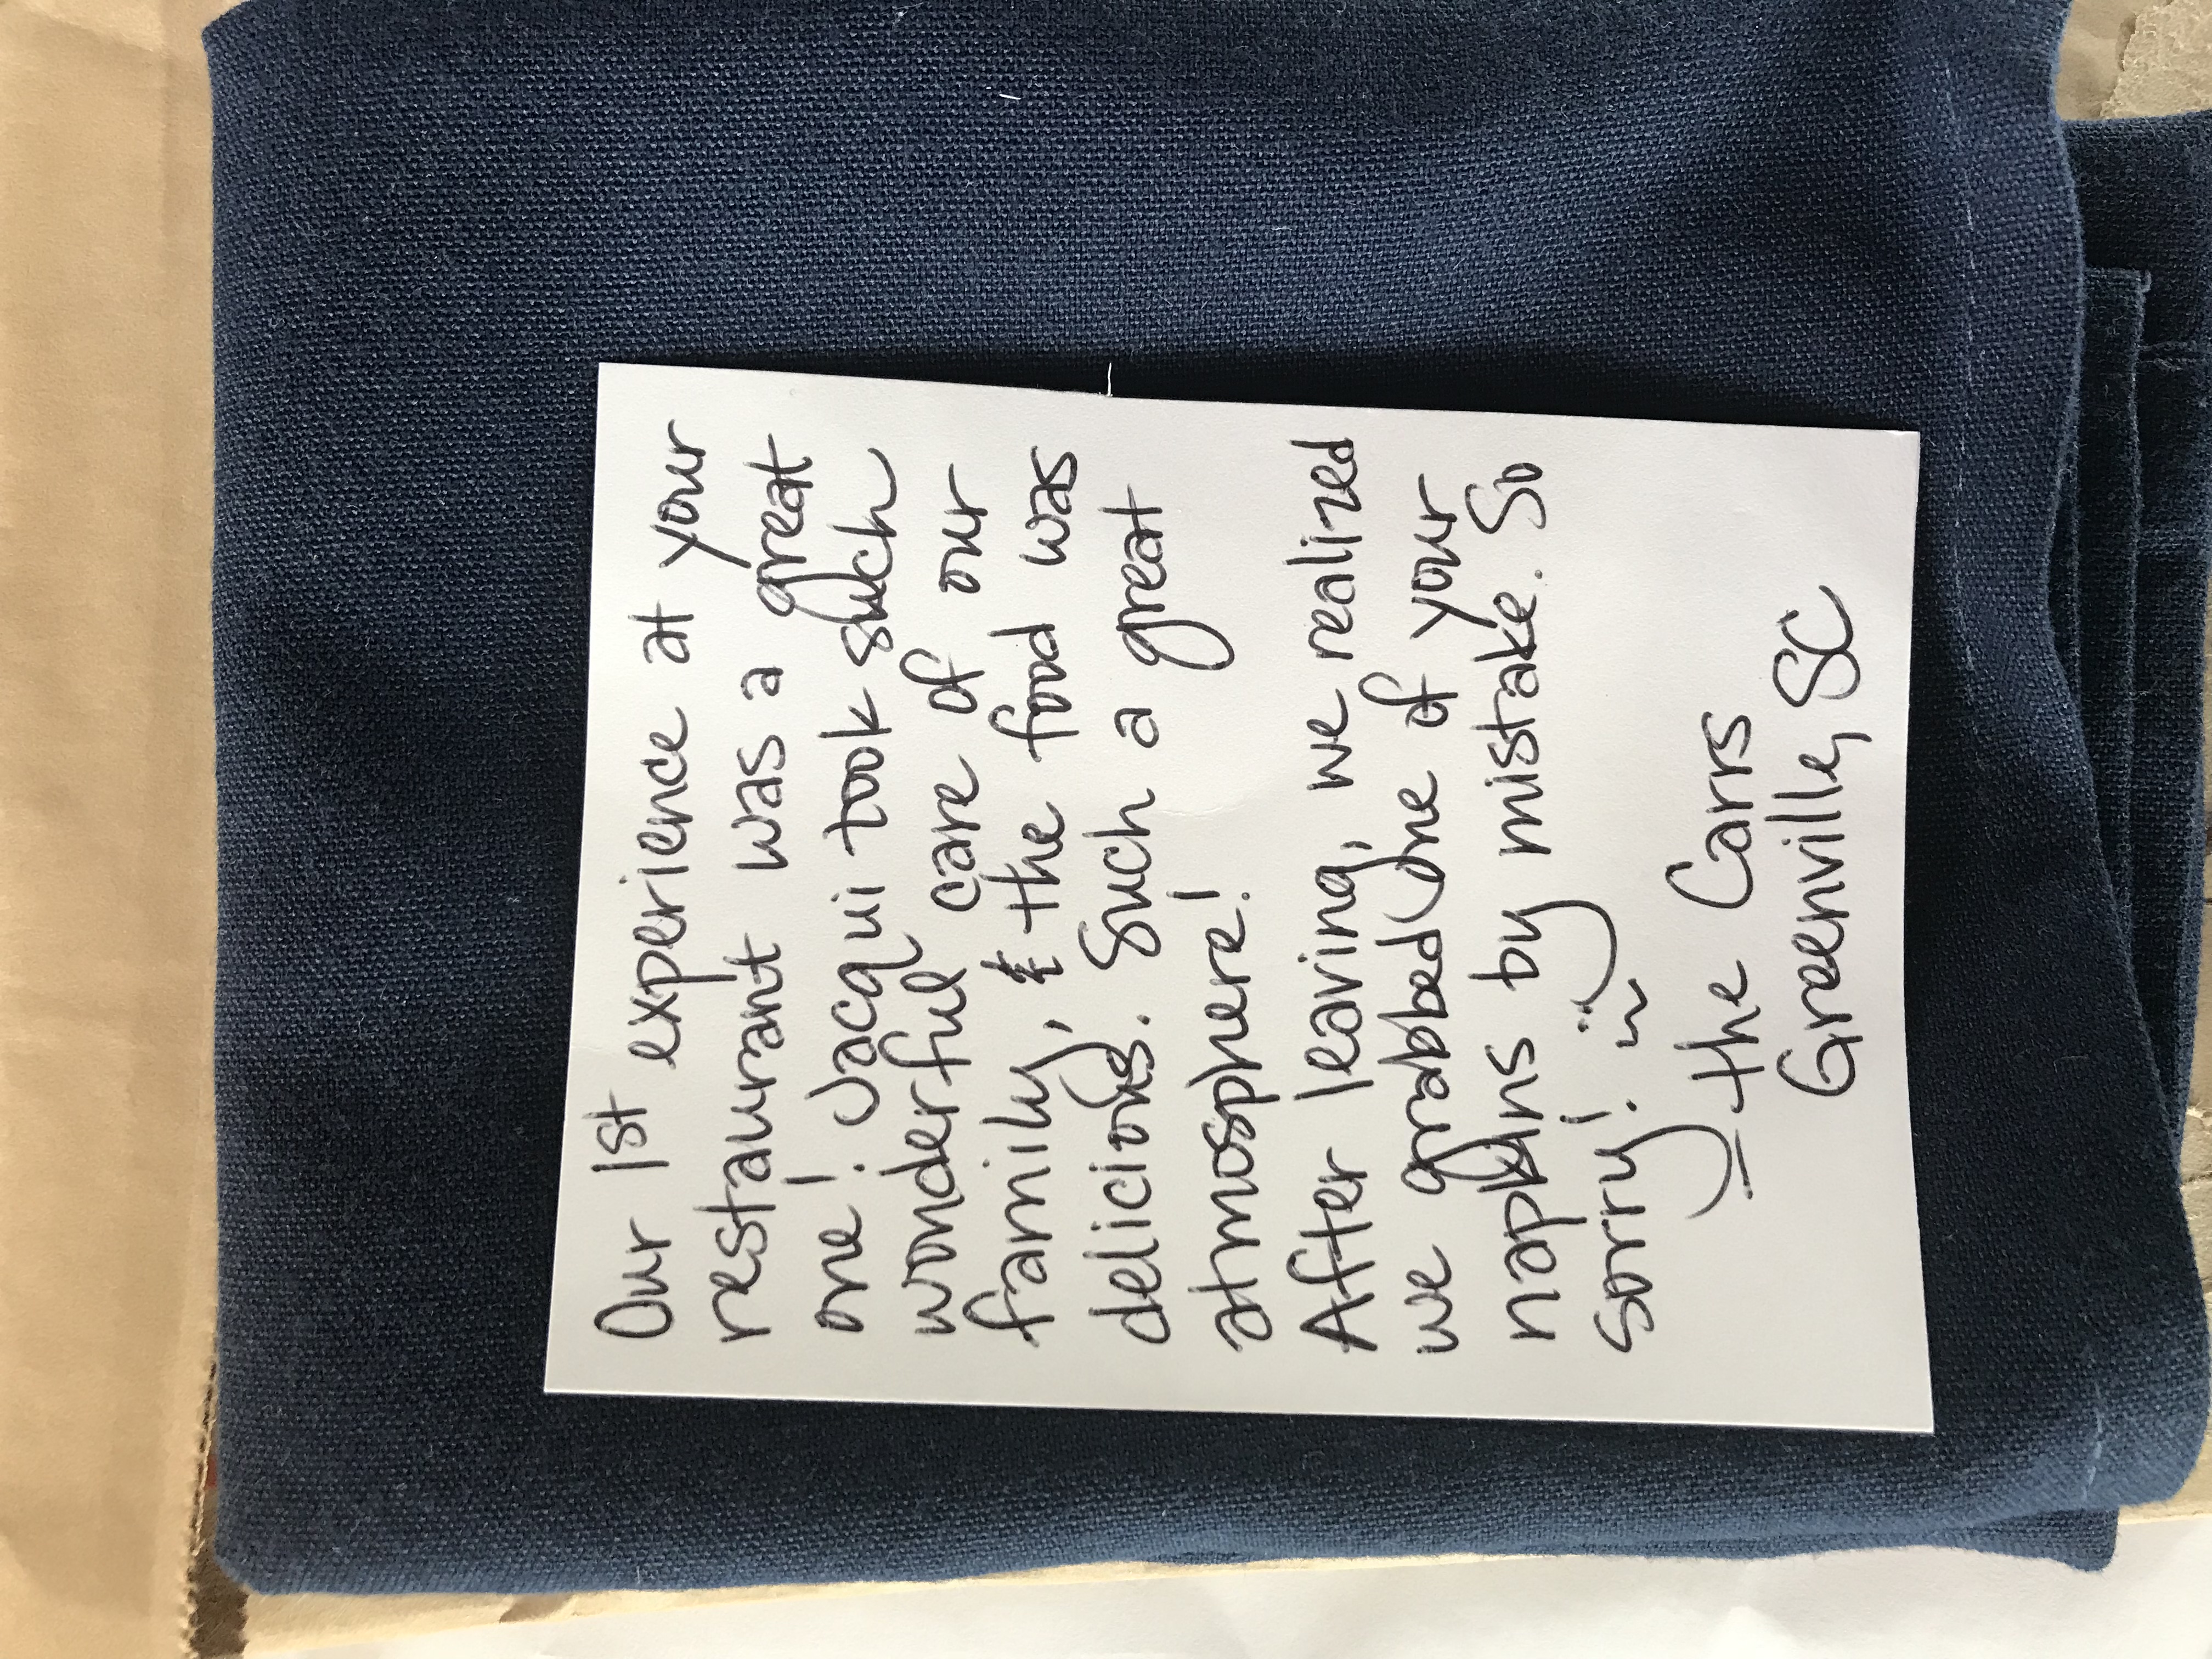 Our 1st experience at your
restaurant was a great
one! Jacqui took such
wonderful care of our
family, & the food was
delicious. Such a great
atmosphere!
After leaving, we realized
we grabbed one of your
napkins by mistake. So
sorry! :~
- the Carrs
Greenville, SC